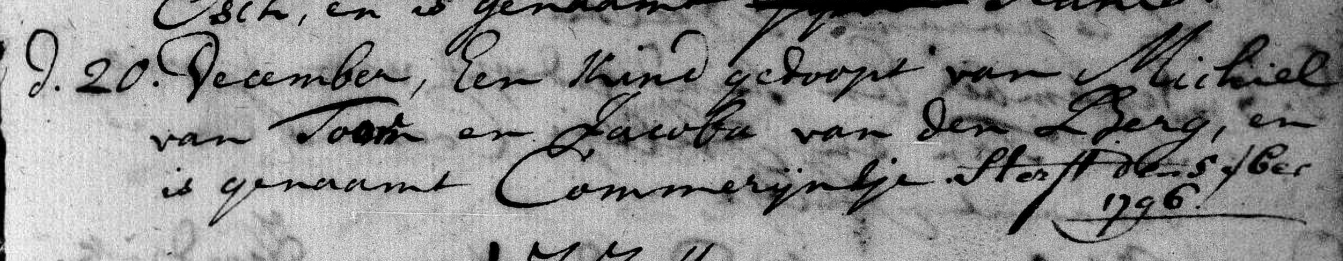 Esch, en is genaamt
d. 20. December, Een Kind gedoopt van Michiel
van Toorn en Jacoba van den Berg, en
is genaamt Commerijntje. Sterft den 5
1796.